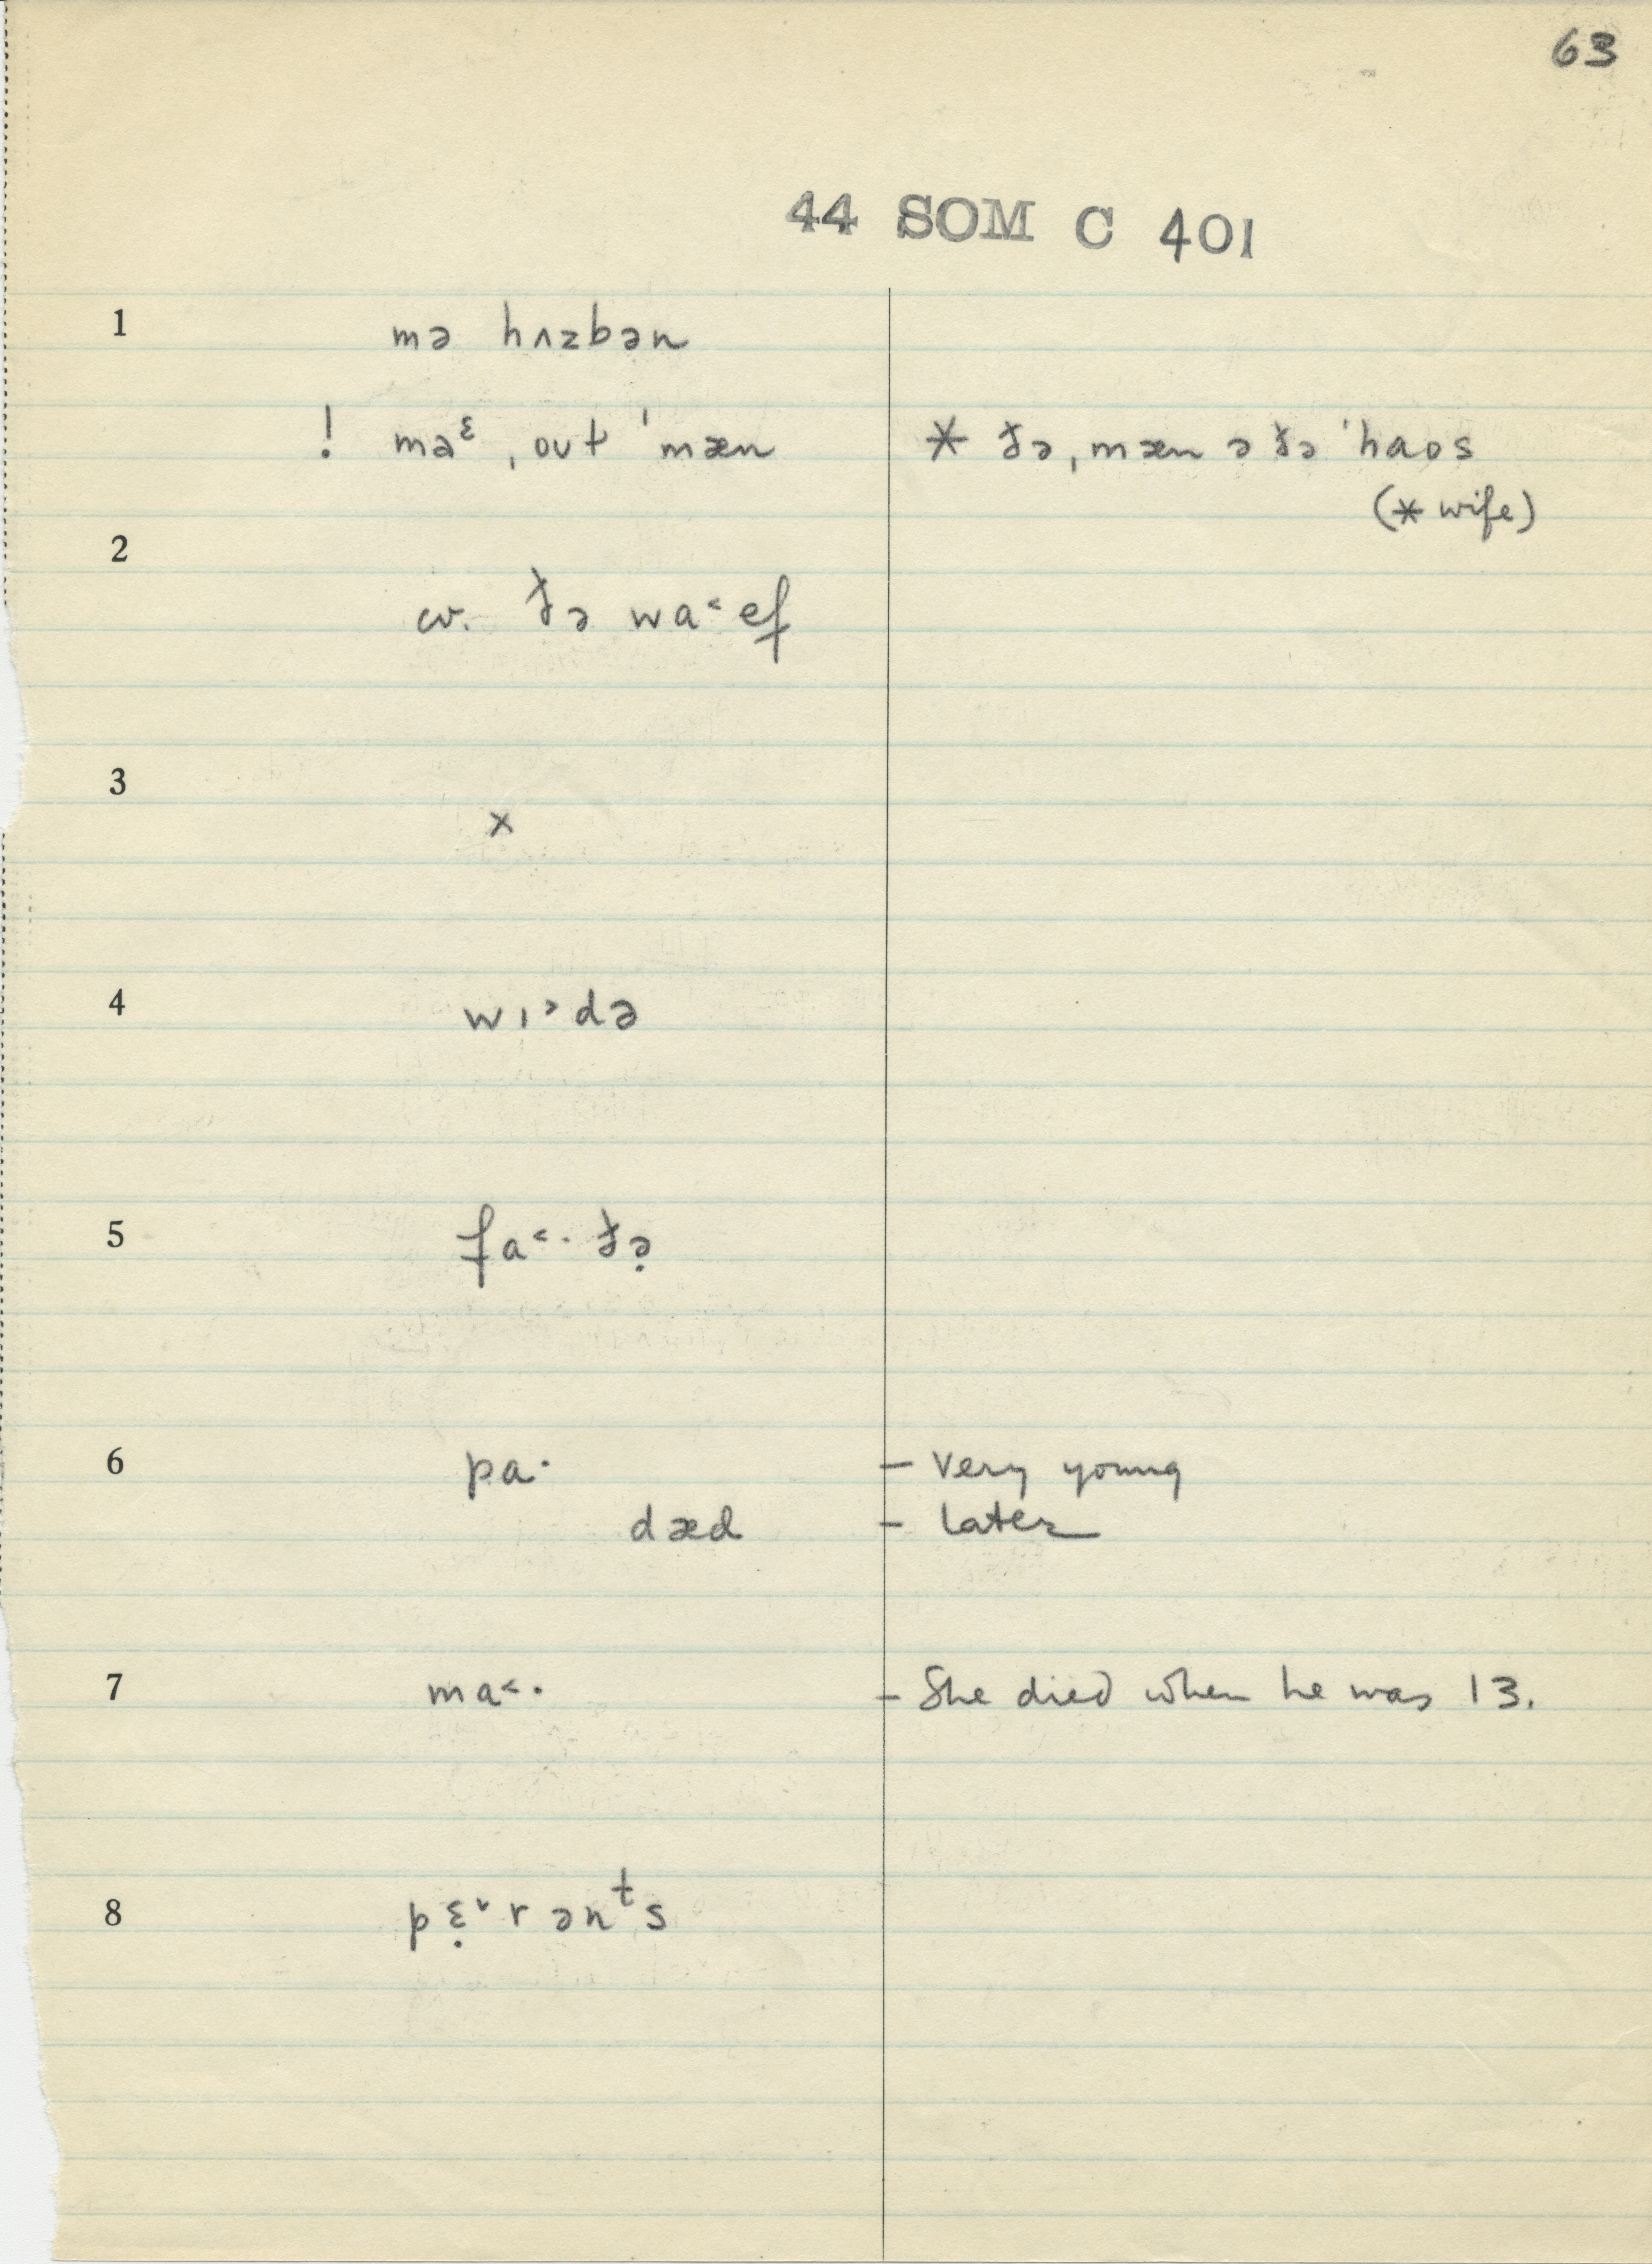 63
44 SOM C 401
1 mə hʌzbən
! maᵋ ˌoʊt ˈmæn * ðə ˌmæn ə ðə ˈhaʊs
(* wife)
2
cv. ðə wa˂ef
3
×
4 wɪ˃də
5 fa˂· ðə̣
6 pa· – very young
dæd – later
7 ma˂· – She died when he was 13.
8 pɛ̣˅rənᵗs